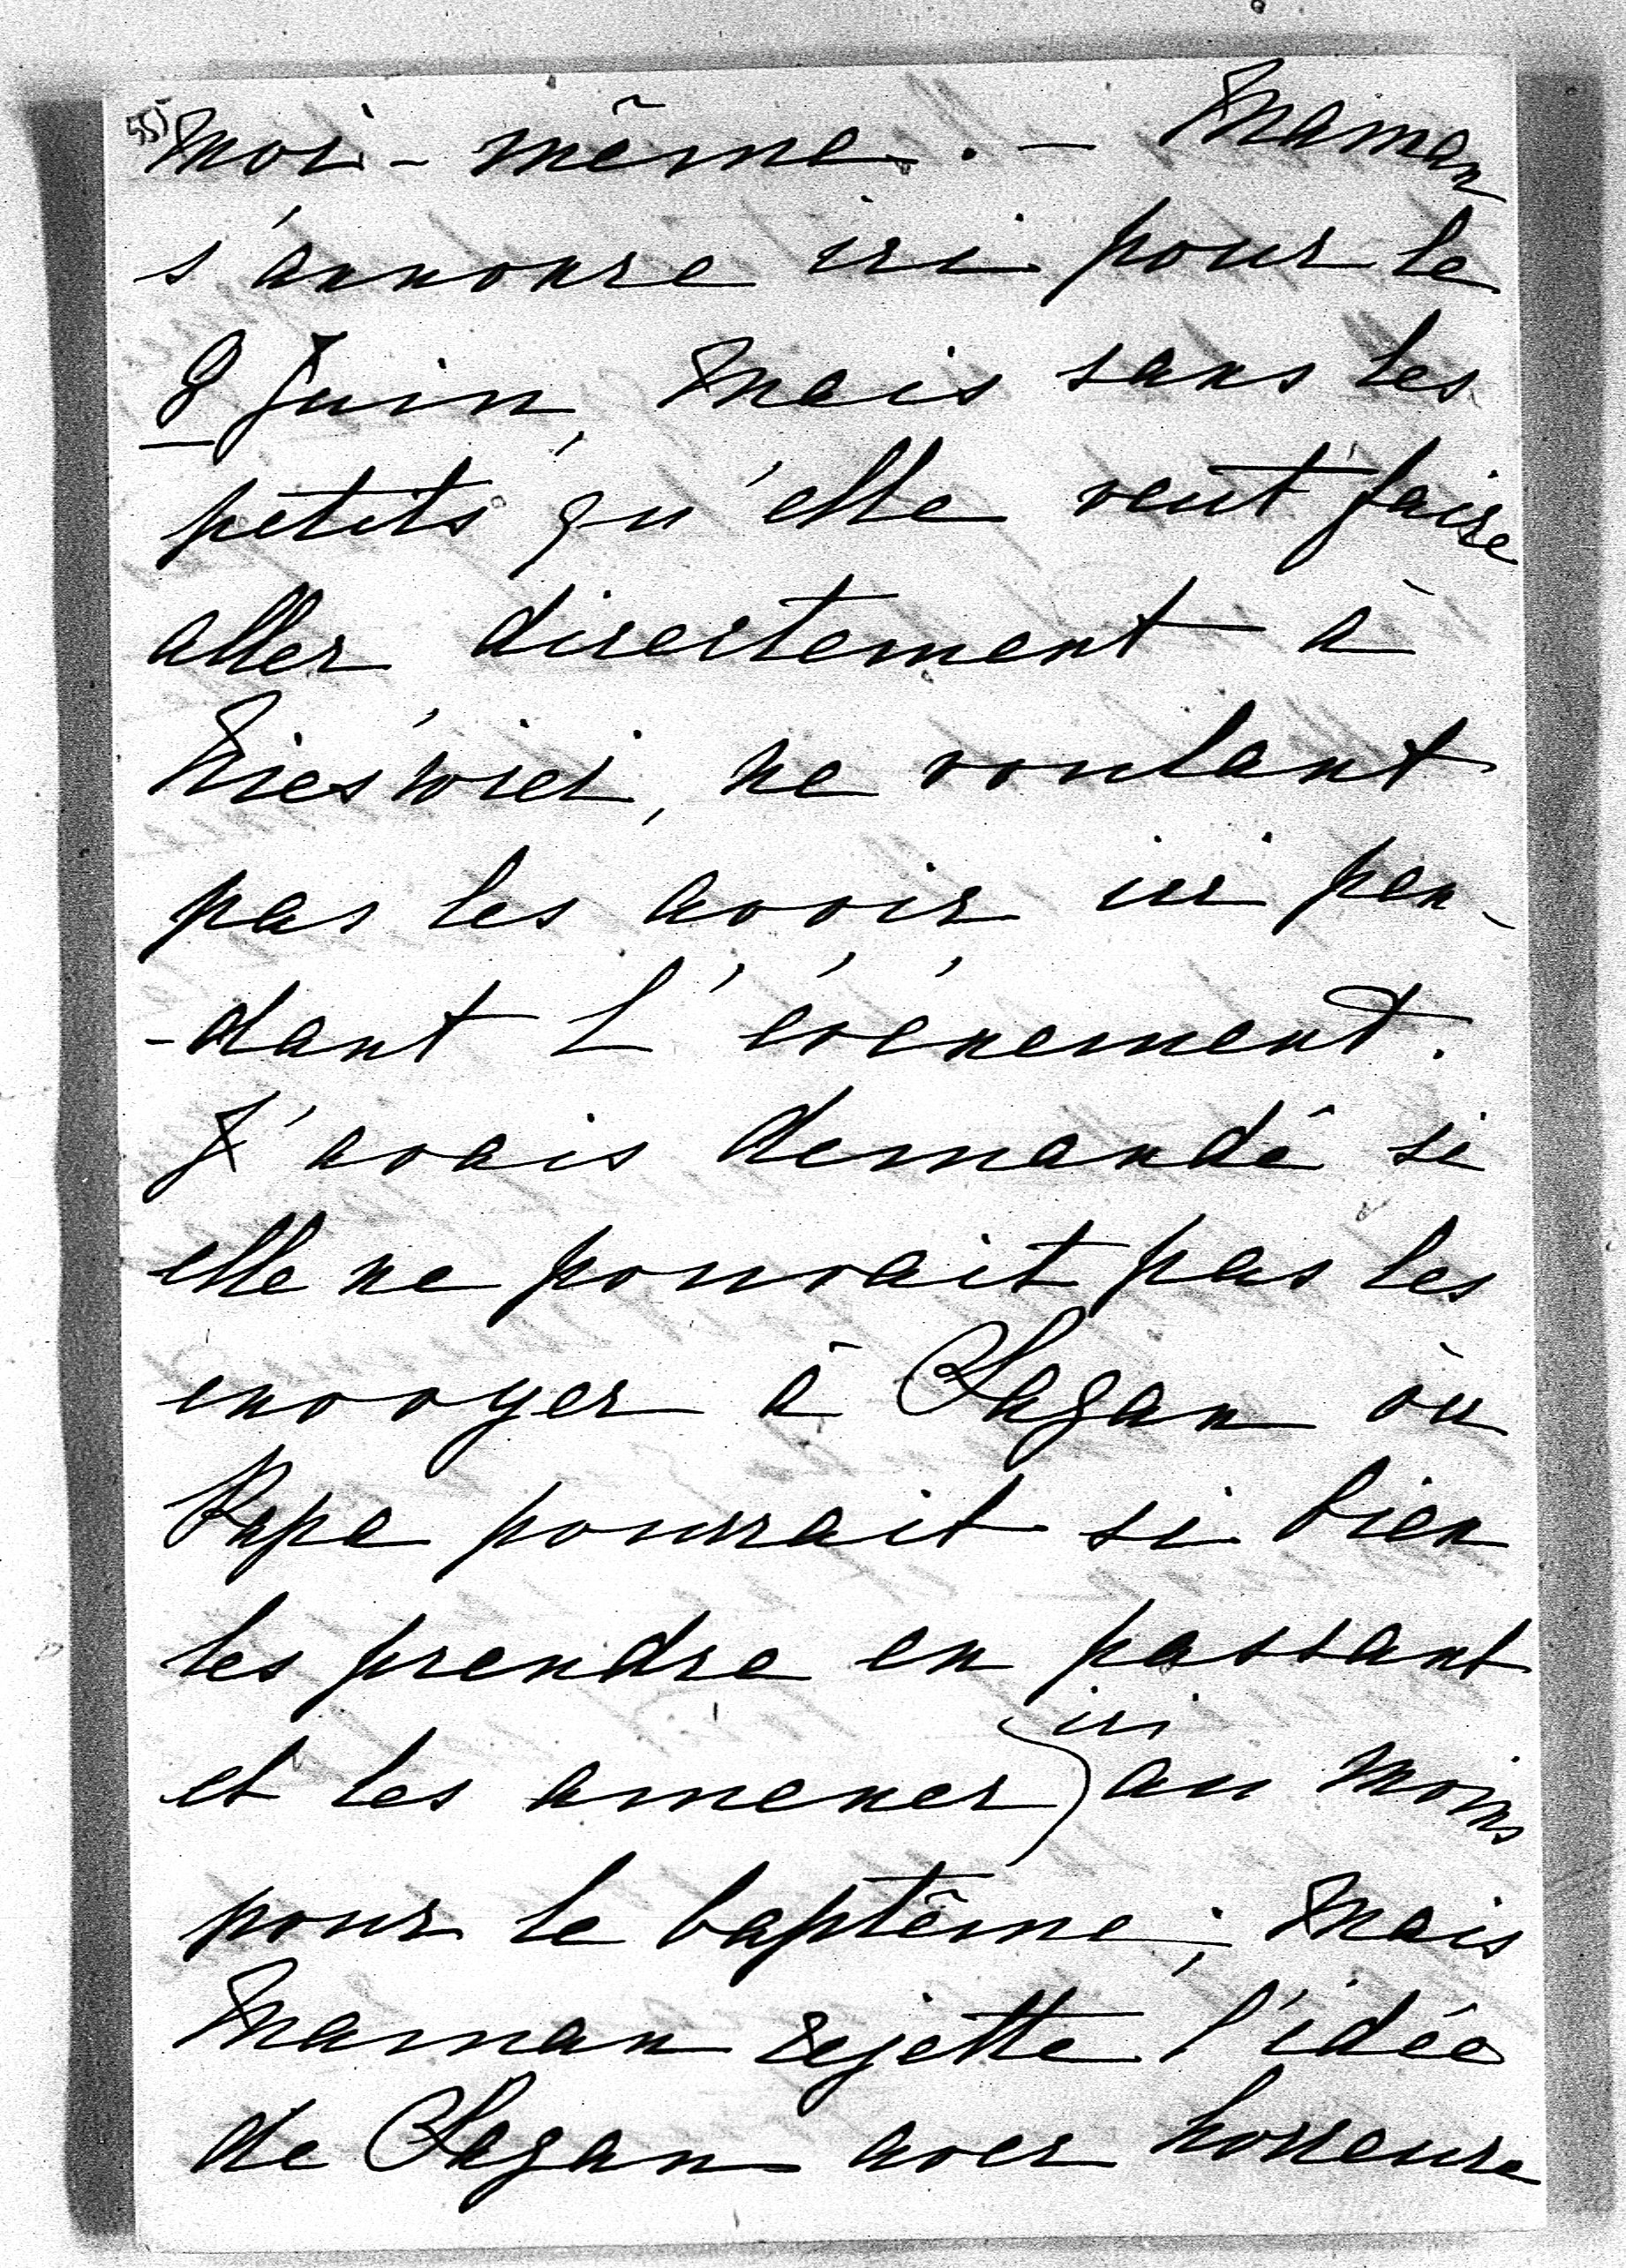 55)
moi-même. — Maman
s'annonce ici pour le
8 Juin, mais sans les
petits qu'elle veut faire
aller directement à
Nieśwież, ne voulant
pas les avoir ici pen-
-dant l'événement.
J'avais demandé si
elle ne pouvait pas les
envoyer à Sagan où
Papa pourrait si bien
les prendre en passant
et les amener ici au moins
pour le baptême; mais
Maman rejette l'idée
de Sagan avec horreure